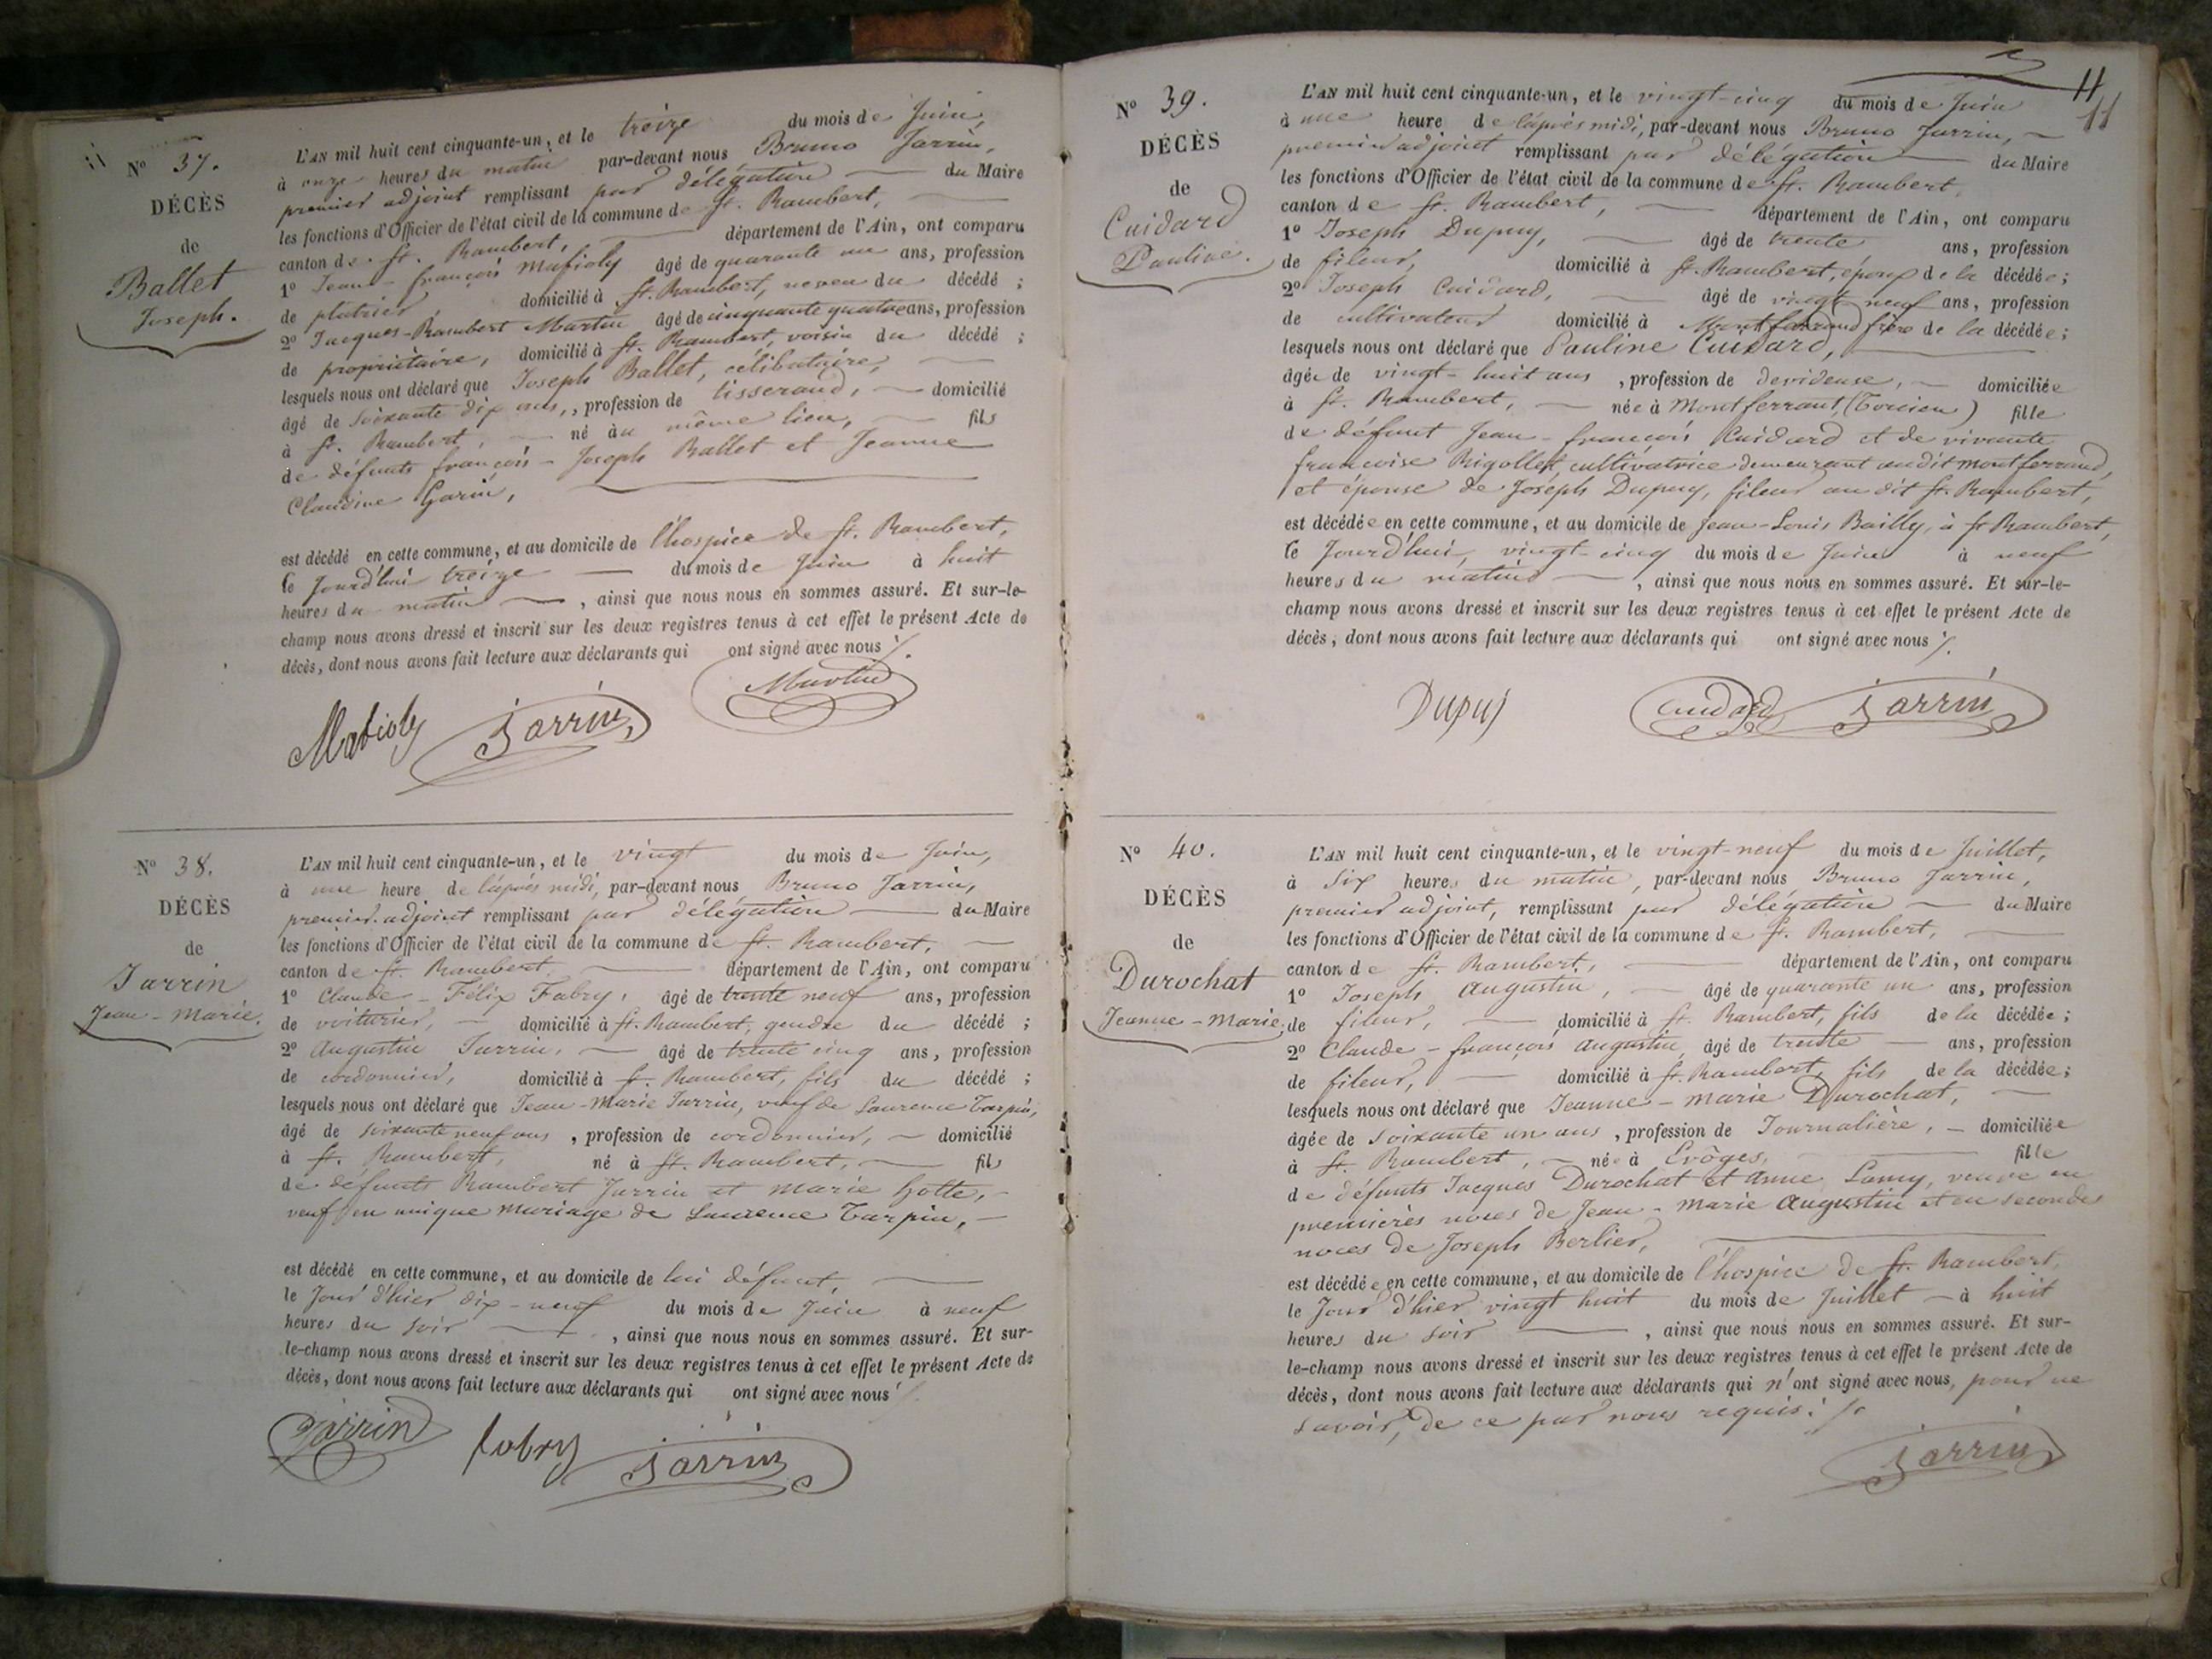 N° 37.
DÉCÈS
de
Ballet
Joseph.
L'AN mil huit cent cinquante-un, et le treize du mois de Juin,
à onze heures du matin par-devant nous Bruno Jarrin,
premier adjoint remplissant par délégation du Maire
les fonctions d'Officier de l'état civil de la commune de St. Rambert,
canton de St. Rambert, département de l'Ain, ont comparu
1° Jean-françois Mafioly âgé de quarante un ans, profession
de platrier, domicilié à St. Rambert, neveu du décédé ;
2° Jacques-Rambert Martin âgé de cinquante quatre ans, profession
de propriétaire, domicilié à St. Rambert, voisin du décédé ;
lesquels nous ont déclaré que Joseph Ballet, célibataire,
âgé de soixante dix ans, , profession de tisserand, domicilié
à St. Rambert, né au même lieu, fils
de défunts françois-Joseph Ballet et Jeanne
Claudine Garin,
est décédé en cette commune, et au domicile de l'hospice de St. Rambert,
le Jourd'hui treize du mois de Juin à huit
heures du matin , ainsi que nous nous en sommes assuré. Et sur-le-
champ nous avons dressé et inscrit sur les deux registres tenus à cet effet le présent Acte de
décès, dont nous avons fait lecture aux déclarants qui ont signé avec nous
Mafioly Jarrin Martin
N° 38.
DÉCÈS
de
Jarrin
Jean-Marie.
L'AN mil huit cent cinquante-un, et le vingt du mois de Juin,
à une heure de l'après midi, par-devant nous Bruno Jarrin,
premier adjoint remplissant par délégation du Maire
les fonctions d'Officier de l'état civil de la commune de St. Rambert,
canton de St. Rambert département de l'Ain, ont comparu
1° Claude-Félix Fabry, âgé de trente neuf ans, profession
de voiturier, domicilié à St. Rambert, gendre du décédé ;
2° Augustin Jarrin, âgé de trente cinq ans, profession
de cordonnier, domicilié à St. Rambert, fils du décédé ;
lesquels nous ont déclaré que Jean-Marie Jarrin, veuf de Laurence Tarpin,
âgé de soixante neuf ans , profession de cordonnier, domicilié
à St. Rambert, né à St. Rambert, fils
de défunts Rambert Jarrin et Marie hotte,
veuf en unique mariage de Laurence Tarpin,
est décédé en cette commune, et au domicile de lui défunt,
le Jour d'hier dix-neuf du mois de Juin à neuf
heures du soir , ainsi que nous nous en sommes assuré. Et sur-
le-champ nous avons dressé et inscrit sur les deux registres tenus à cet effet le présent Acte de
décès, dont nous avons fait lecture aux déclarants qui ont signé avec nous
Jarrin fabry Jarrin
11
11
N° 39.
DÉCÈS
de
Cuidard
Pauline.
L'AN mil huit cent cinquante-un, et le vingt-cinq du mois de Juin
à une heure de l'après midi, par-devant nous Bruno Jarrin,
premier adjoint remplissant par délégation du Maire
les fonctions d'Officier de l'état civil de la commune de St. Rambert,
canton de St. Rambert, département de l'Ain, ont comparu
1° Joseph Dupuy, âgé de trente ans, profession
de fileur, domicilié à St. Rambert, époux de la décédée ;
2° Joseph Cuidard, âgé de vingt neuf ans, profession
de cultivateur domicilié à Montferrand frère de la décédée ;
lesquels nous ont déclaré que Pauline Cuidard,
âgée de vingt-huit ans , profession de devideuse, domiciliée
à St. Rambert, née à Montferrant, (Torcieu) fille
de défunt Jean-françois Cuidard et de vivante
françoise Rigollet, cultivatrice demeurant au dit montferrand,
et épouse de Joseph Dupuy, fileur au dit St. Rambert,
est décédée en cette commune, et au domicile de Jean-Louis Bailly, à St Rambert,
le Jourd'hui, vingt-cinq du mois de Juin à neuf
heures du matin , ainsi que nous nous en sommes assuré. Et sur-le-
champ nous avons dressé et inscrit sur les deux registres tenus à cet effet le présent Acte de
décès, dont nous avons fait lecture aux déclarants qui ont signé avec nous
Dupuy Cuidard Jarrin
N° 40.
DÉCÈS
de
Durochat
Jeanne-Marie.
L'AN mil huit cent cinquante-un, et le vingt-neuf du mois de Juillet,
à Six heures du matin, par-devant nous Bruno Jarrin,
premier adjoint, remplissant par délégation du Maire
les fonctions d'Officier de l'état civil de la commune de St. Rambert,
canton de St. Rambert, département de l'Ain, ont comparu
1° Joseph Augustin, âgé de quarante un ans, profession
de fileur, domicilié à St. Rambert, fils de la décédée ;
2° Claude-françois Augustin, âgé de trente ans, profession
de fileur, domicilié à St. Rambert, fils de la décédée ;
lesquels nous ont déclaré que Jeanne-Marie Durochat,
âgée de soixante un ans , profession de Journalière, domiciliée
à St. Rambert, née à Evôges, fille
de défunts Jacques Durochat et Anne Lamy, veuve en
premières noces de Jean-Marie Augustin et en secondes
noces de Joseph Berlier,
est décédée en cette commune, et au domicile de l'hospice de St. Rambert,
le Jour d'hier vingt huit du mois de Juillet à huit
heures du soir , ainsi que nous nous en sommes assuré. Et sur-
le-champ nous avons dressé et inscrit sur les deux registres tenus à cet effet le présent Acte de
décès, dont nous avons fait lecture aux déclarants qui n'ont signé avec nous, pour ne
savoir, de ce par nous requis.
Jarrin